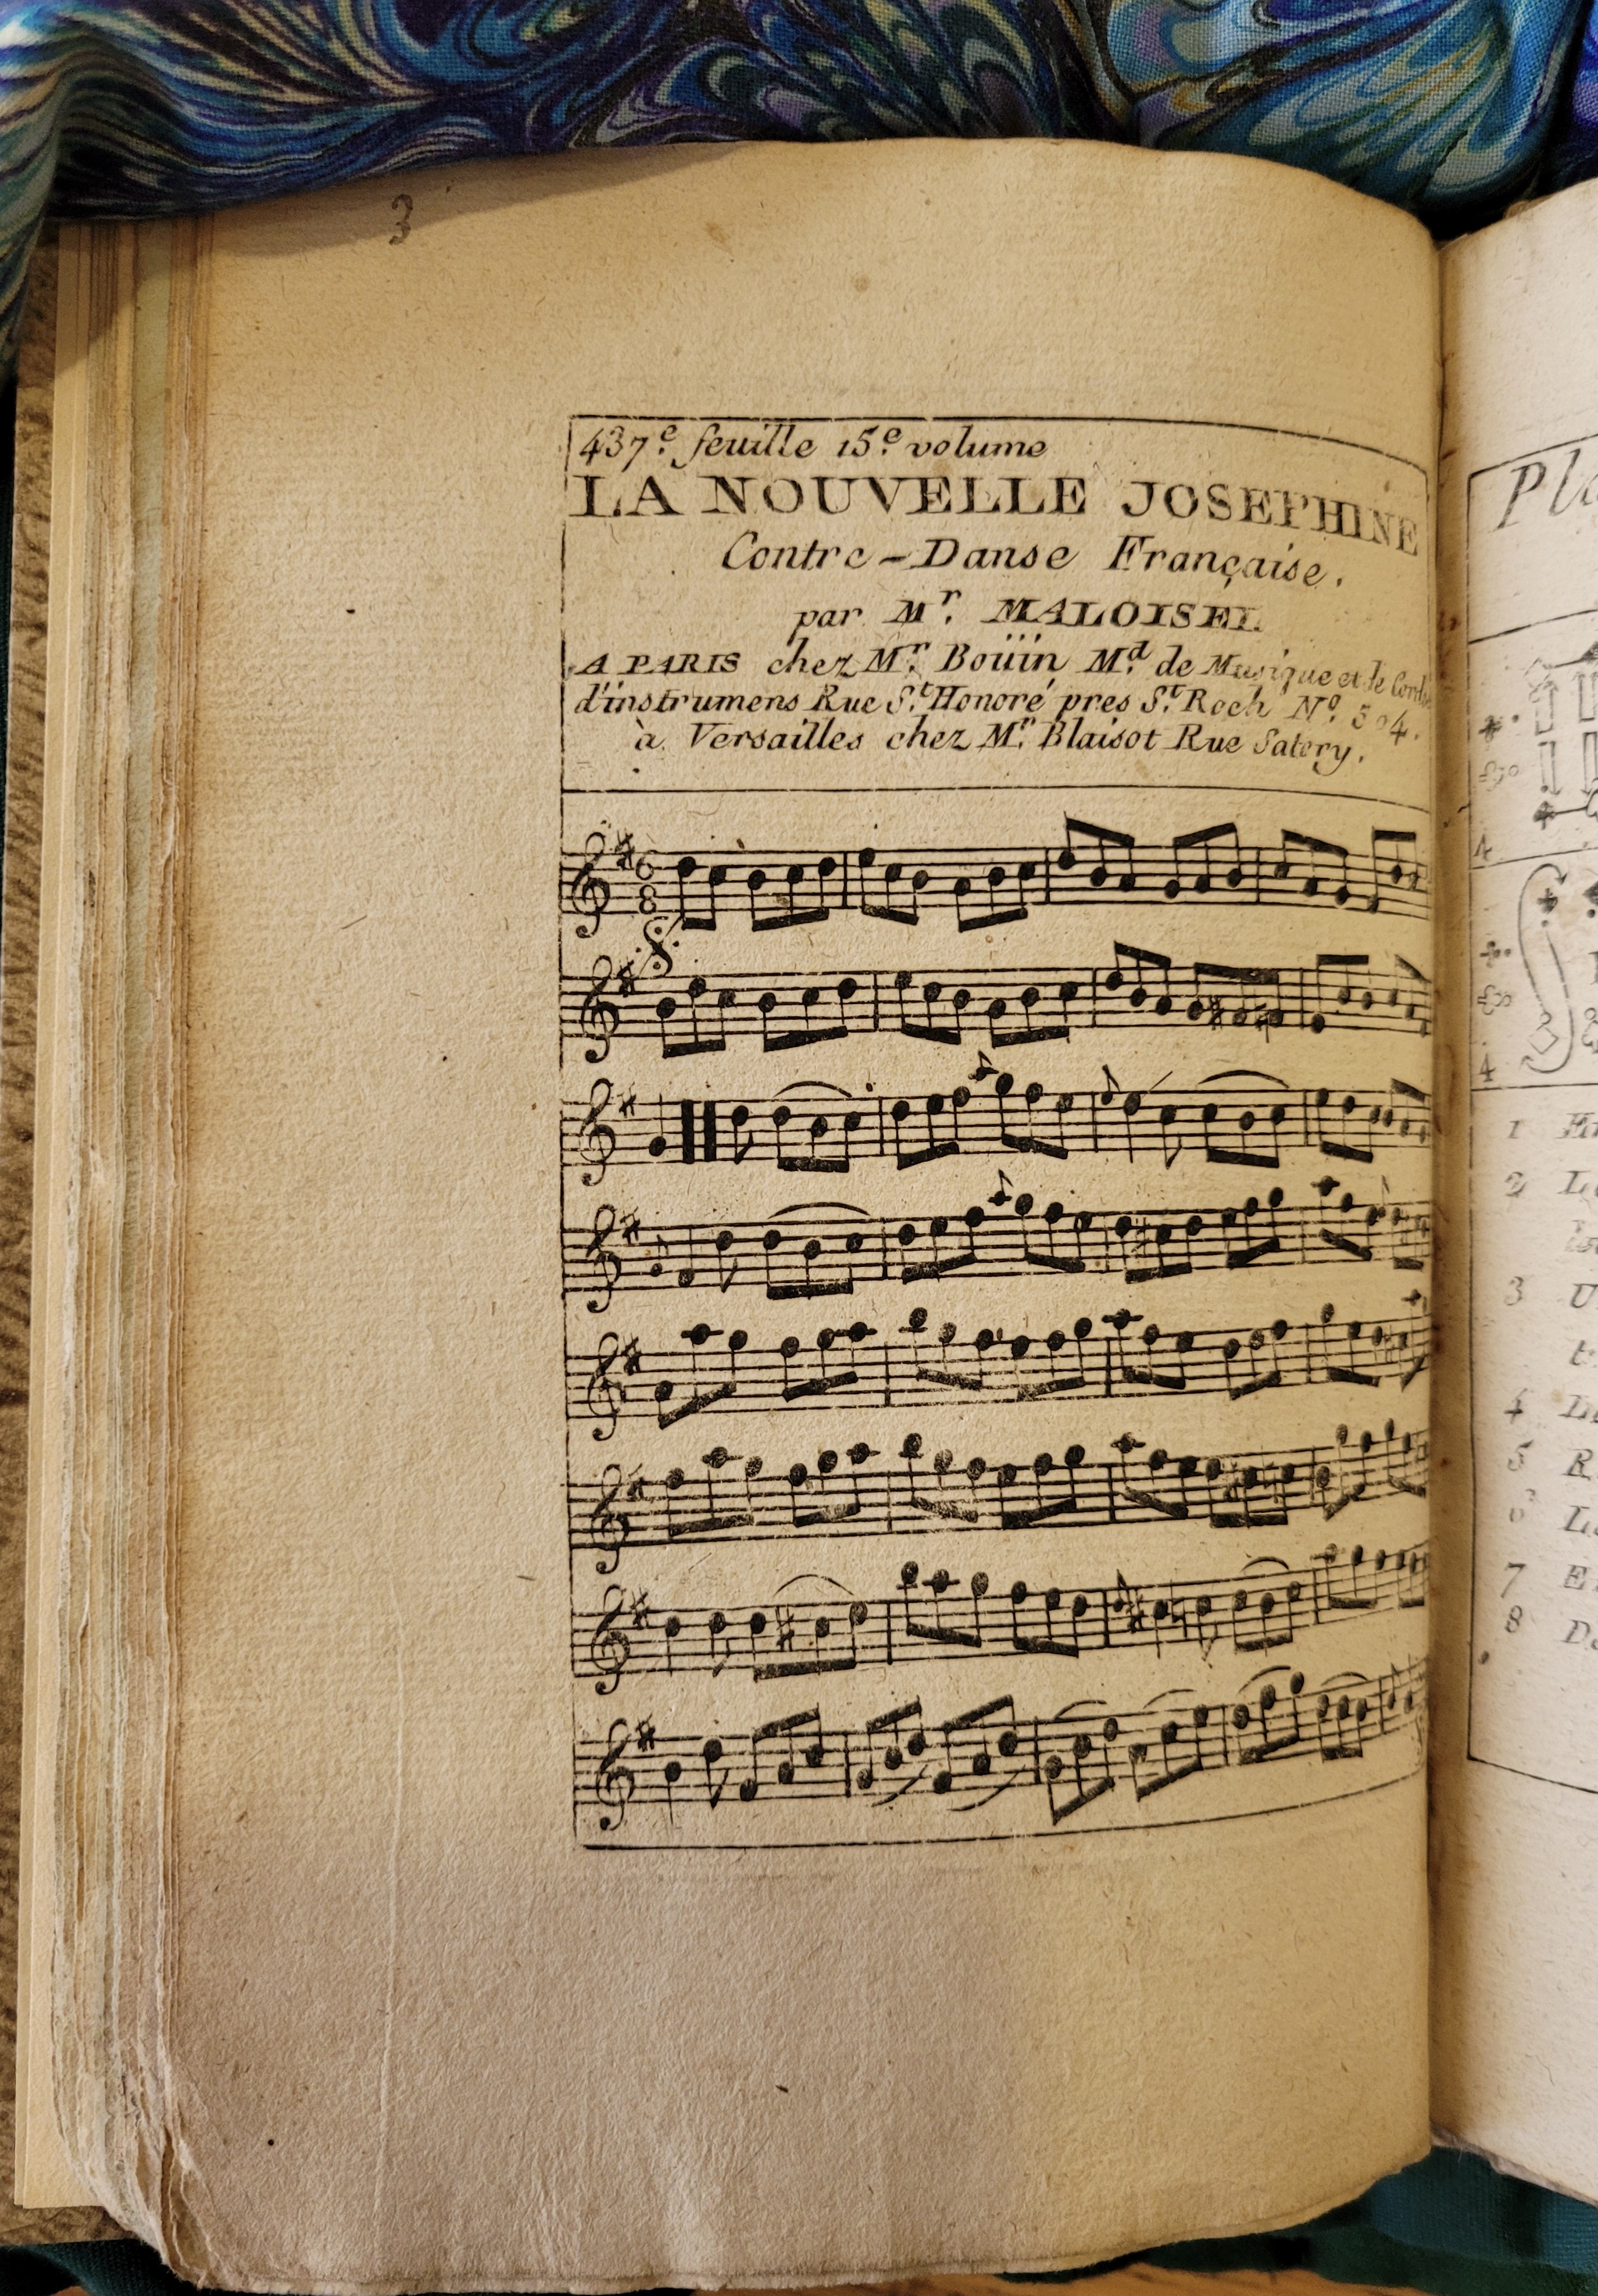 3
437.e feuille 15.e volume
LA NOUVELLE JOSEPHINE
Contre-Danse Française.
par Mr. MALOISEL
A PARIS chez Mr. Boüin, Md. de Musique et de
d'instrumens Rue St. Honoré pres St. Roch No. 504.
à Versailles chez Mr. Blaisot Rue Satory.
6
8
4
4
1
2
3
4
5
7
8